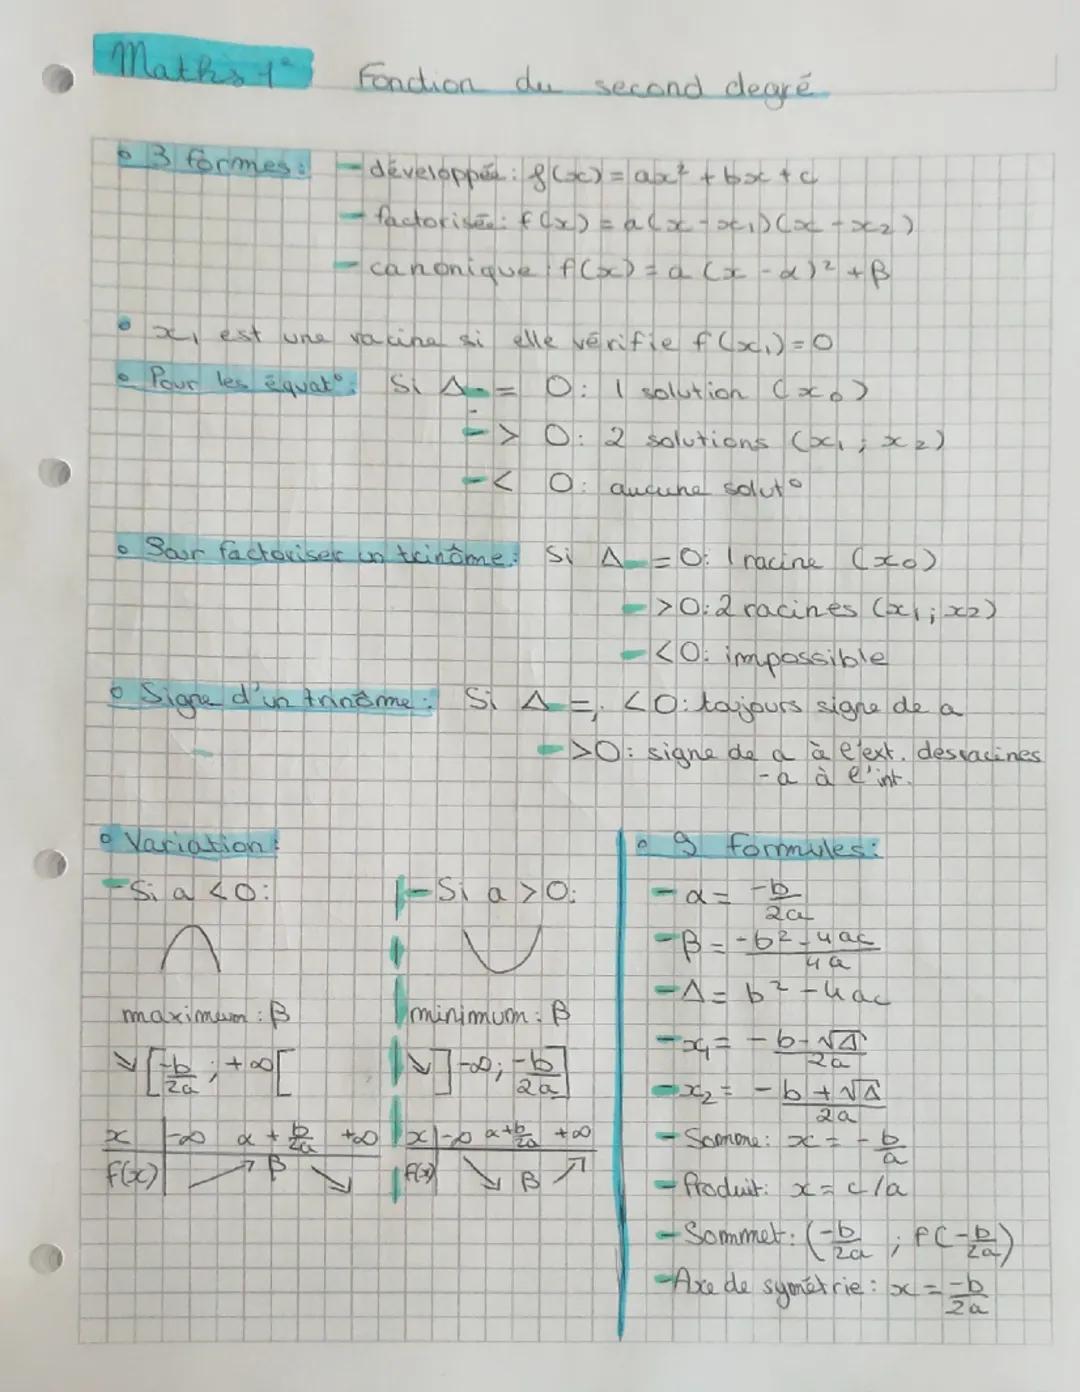 Maths 1° Fonction du second degré
• 3 formes: - développée: f(x) = ax² + bx + c
- factorisée: f(x) = a(x - x₁)(x - x₂)
- canonique f(x) = a (x - α)² + β
• x₁ est une racine si elle vérifie f(x₁) = 0
• Pour les équat°: Si Δ - = 0: 1 solution (x₀)
- > 0: 2 solutions (x₁ ; x₂)
- < 0: aucune solut°
• Pour factoriser un trinôme: Si Δ - = 0: 1 racine (x₀)
- >0: 2 racines (x₁; x₂)
- <0: impossible
• Signe d'un trinôme: Si Δ - =; <0: toujours signe de a
- >0: signe de a à l'ext. des racines
-a à l'int.
• Variation:
- Si a < 0:
maximum: β
↘ [-b/2a ; +∞[
x | -∞ α + b/2a +∞
f(x) | ↗ β ↘
- Si a > 0:
minimum: β
↘ ]-∞; -b/2a]
x | -∞ α + b/2a +∞
f(x) | ↘ β ↗
• 9 formules:
- α = -b/2a
- β = -b² - 4ac/4a
- Δ = b² - 4ac
- x₁ = -b - √Δ/2a
- x₂ = -b + √Δ/2a
- Somme: x = -b/a
- Produit: x = c/a
- Sommet: (-b/2a ; f(-b/2a)
- Axe de symétrie: x = -b/2a